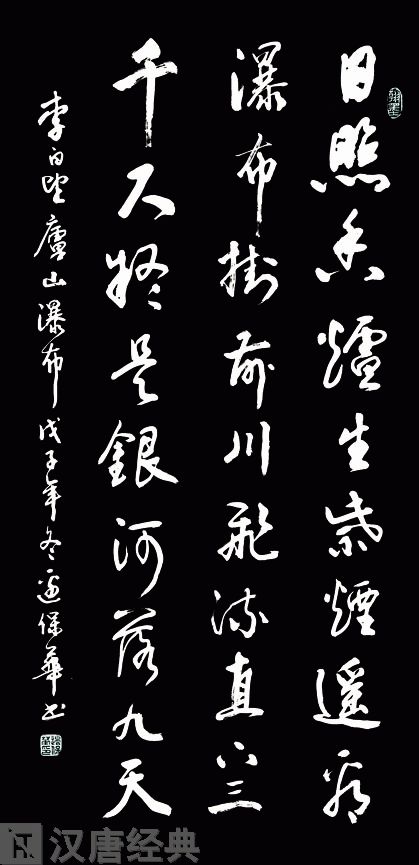 日照香爐生紫煙遙看
瀑布掛前川飛流直下三
千尺疑是銀河落九天
李白望廬山瀑布戊子年冬邊保華书
汉唐经典